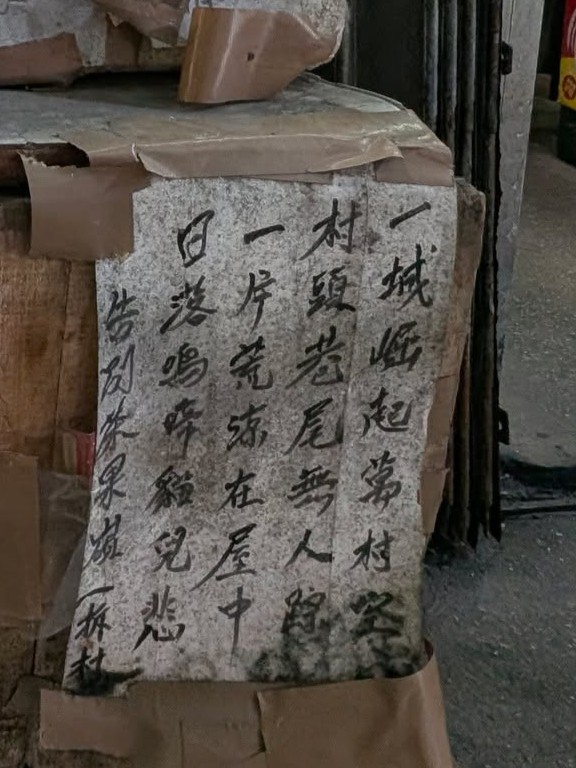 一城崛起萬村空
村頭巷尾無人踪
一片荒涼在屋中
日落鳴啼貓兒悲
告別茶果嶺一拆村